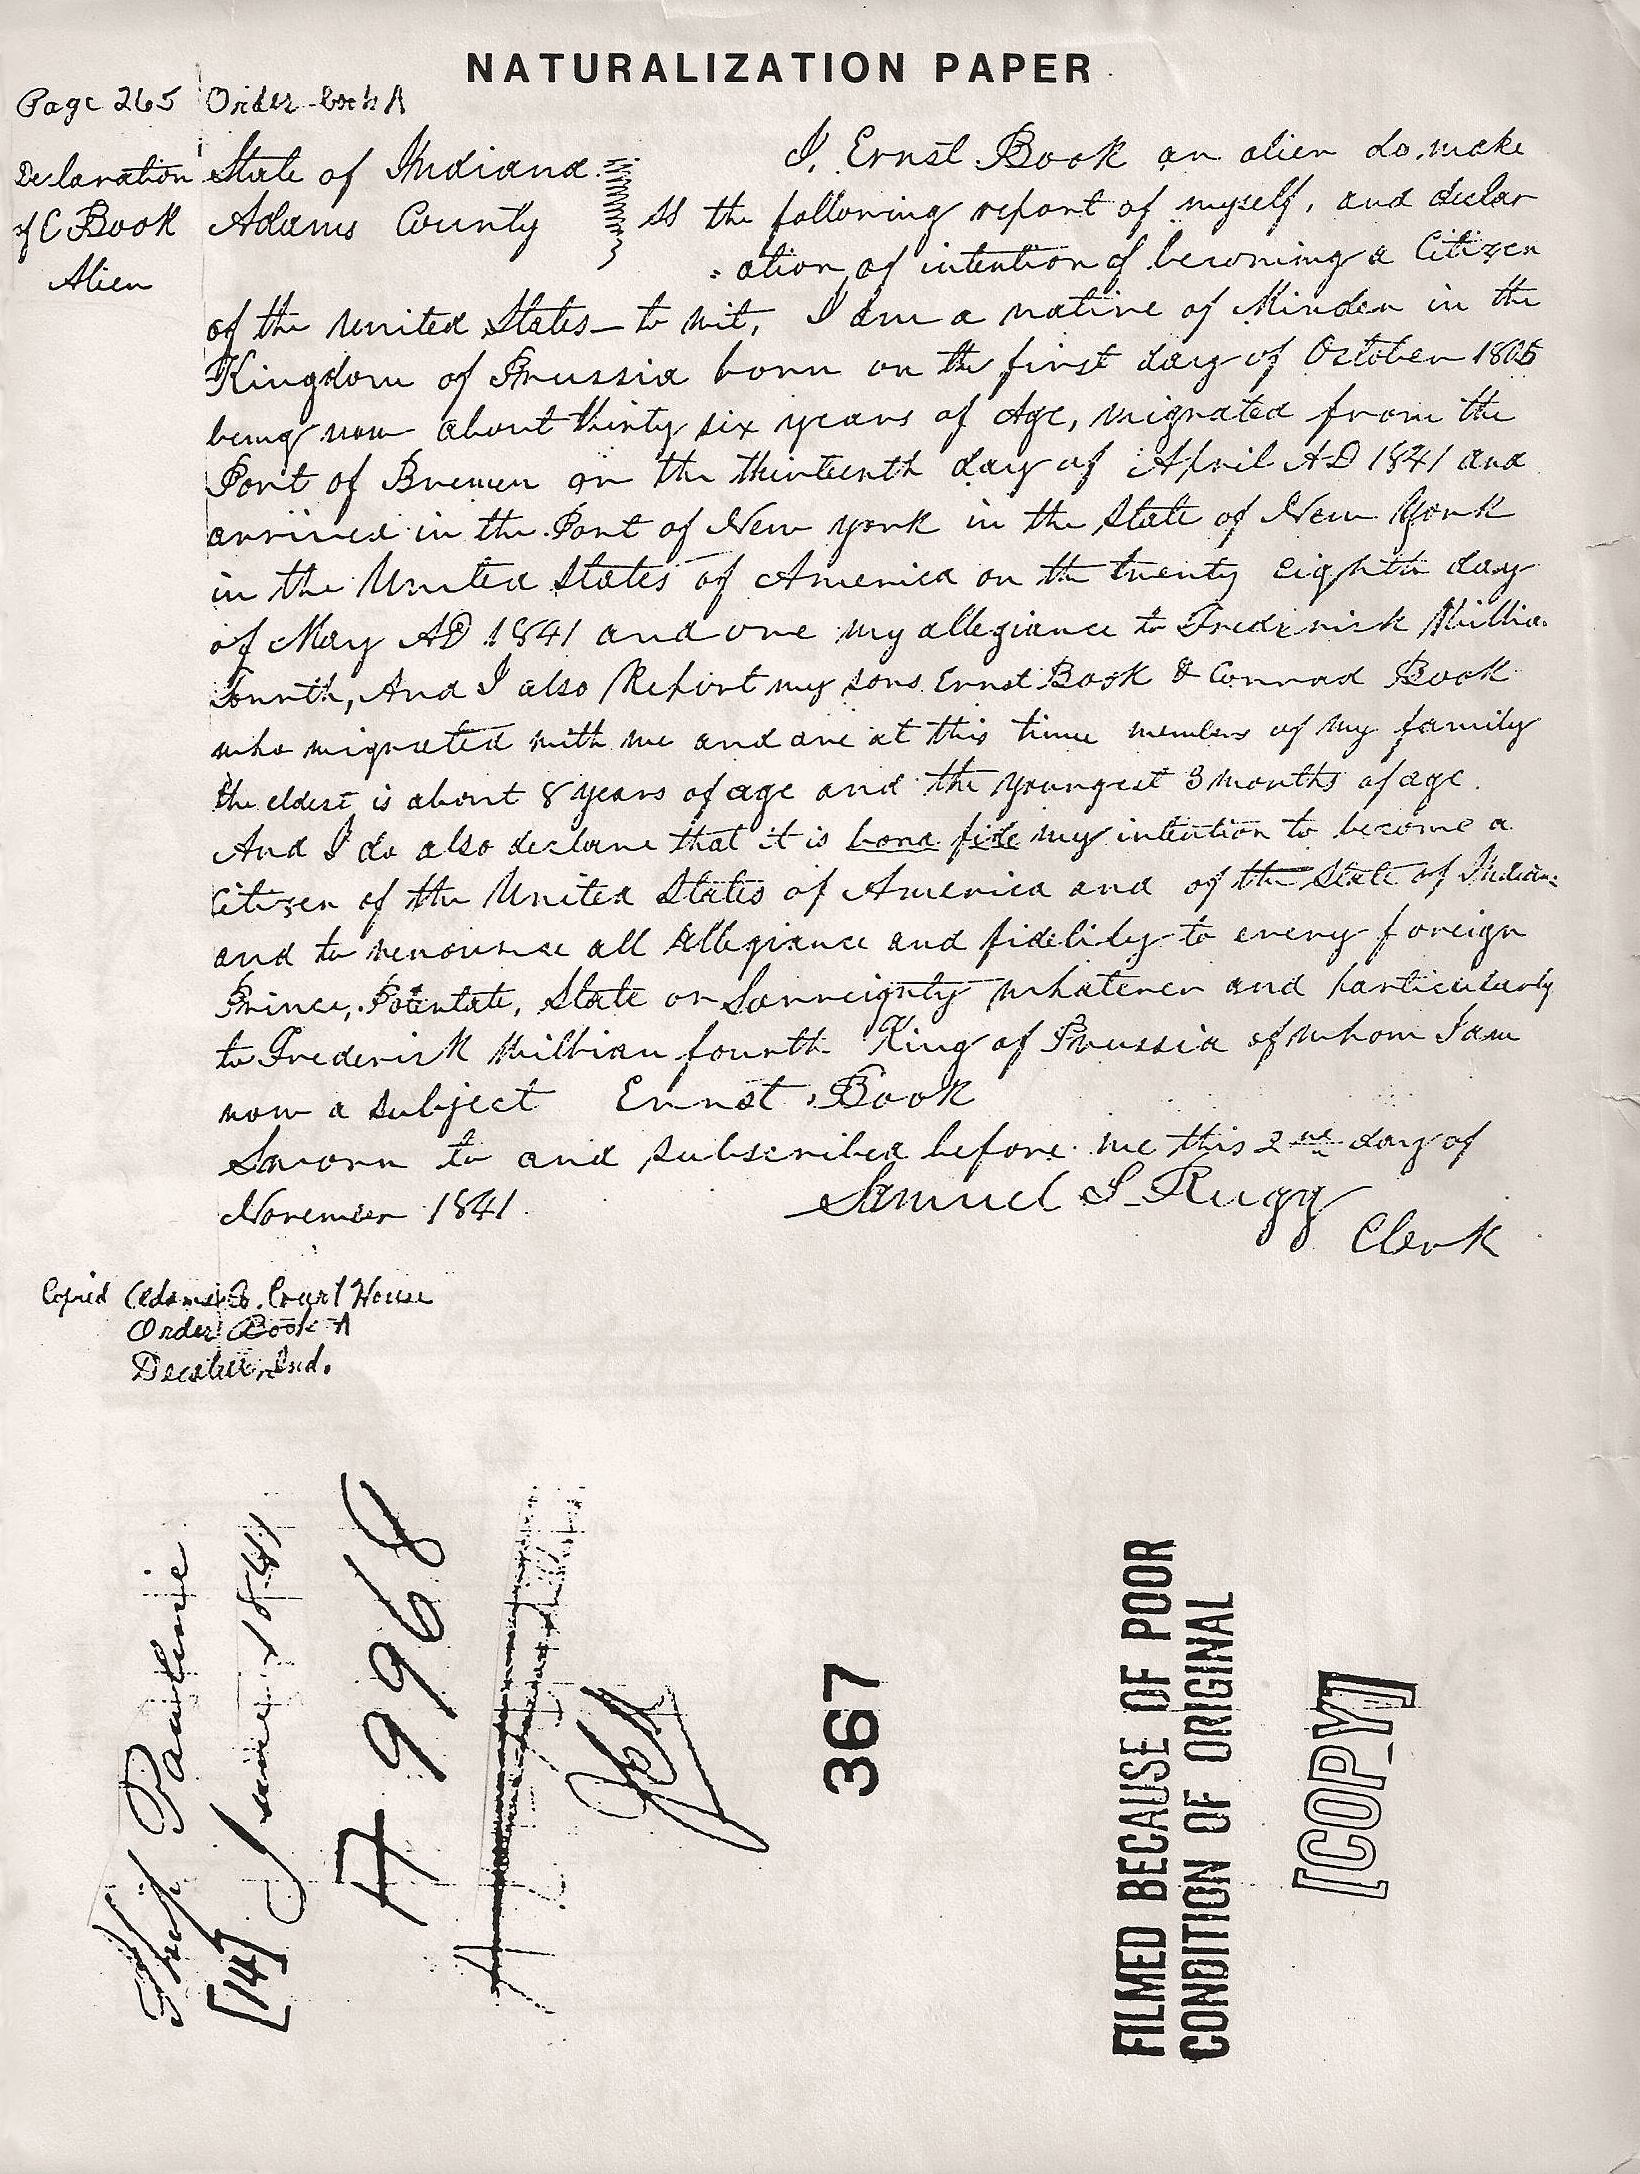 NATURALIZATION PAPER
Page 265 Order Book A
Declaration of C Book Alien
State of Indiana
Adams County ss
I, Ernst Book an alien do make
the following report of myself, and declar
ation of intention of becoming a Citizen
of the United States — to wit, I am a native of Minden in the
Kingdom of Prussia born on the first day of October 1805
being now about thirty six years of Age, migrated from the
Port of Bremen on the thirteenth day of April AD 1841 and
arrived in the Port of New york in the State of New York
in the United States of America on the twenty eighth day
of May AD 1841 and owe my allegiance to Frederick Willia
Fourth, And I also Report my sons Ernst Book & Conrad Book
who migrated with me and are at this time members of my family
the eldest is about 8 years of age and the youngest 3 months of age.
And I do also declare that it is bona fide my intention to become a
Citizen of the United States of America and of the State of Indian
and to renounce all Allegiance and fidelity to every foreign
Prince, Potentate, State or Sovreignty whatever and particularly
to Frederick William fourth King of Prussia of whom I am
now a subject Ernst Book
Sworn to and subscribed before me this 2nd day of
November 1841.
Samuel S. Rugg
Clerk
Copied Adams Co. Court House
Order Book A
Decatur, Ind.
Ship Pauline
[14] June 1 1841
A 9968
367
FILMED BECAUSE OF POOR
CONDITION OF ORIGINAL
[COPY]